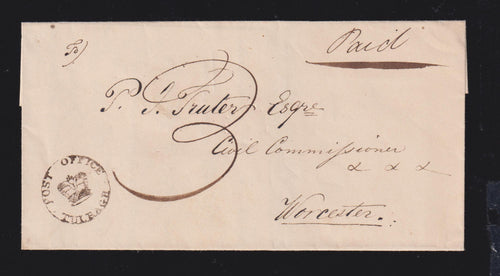 Paid
3
P. J. Truter Esqre
Civil Commissioner
& & &
Worcester.
POST OFFICE
TULBAGH